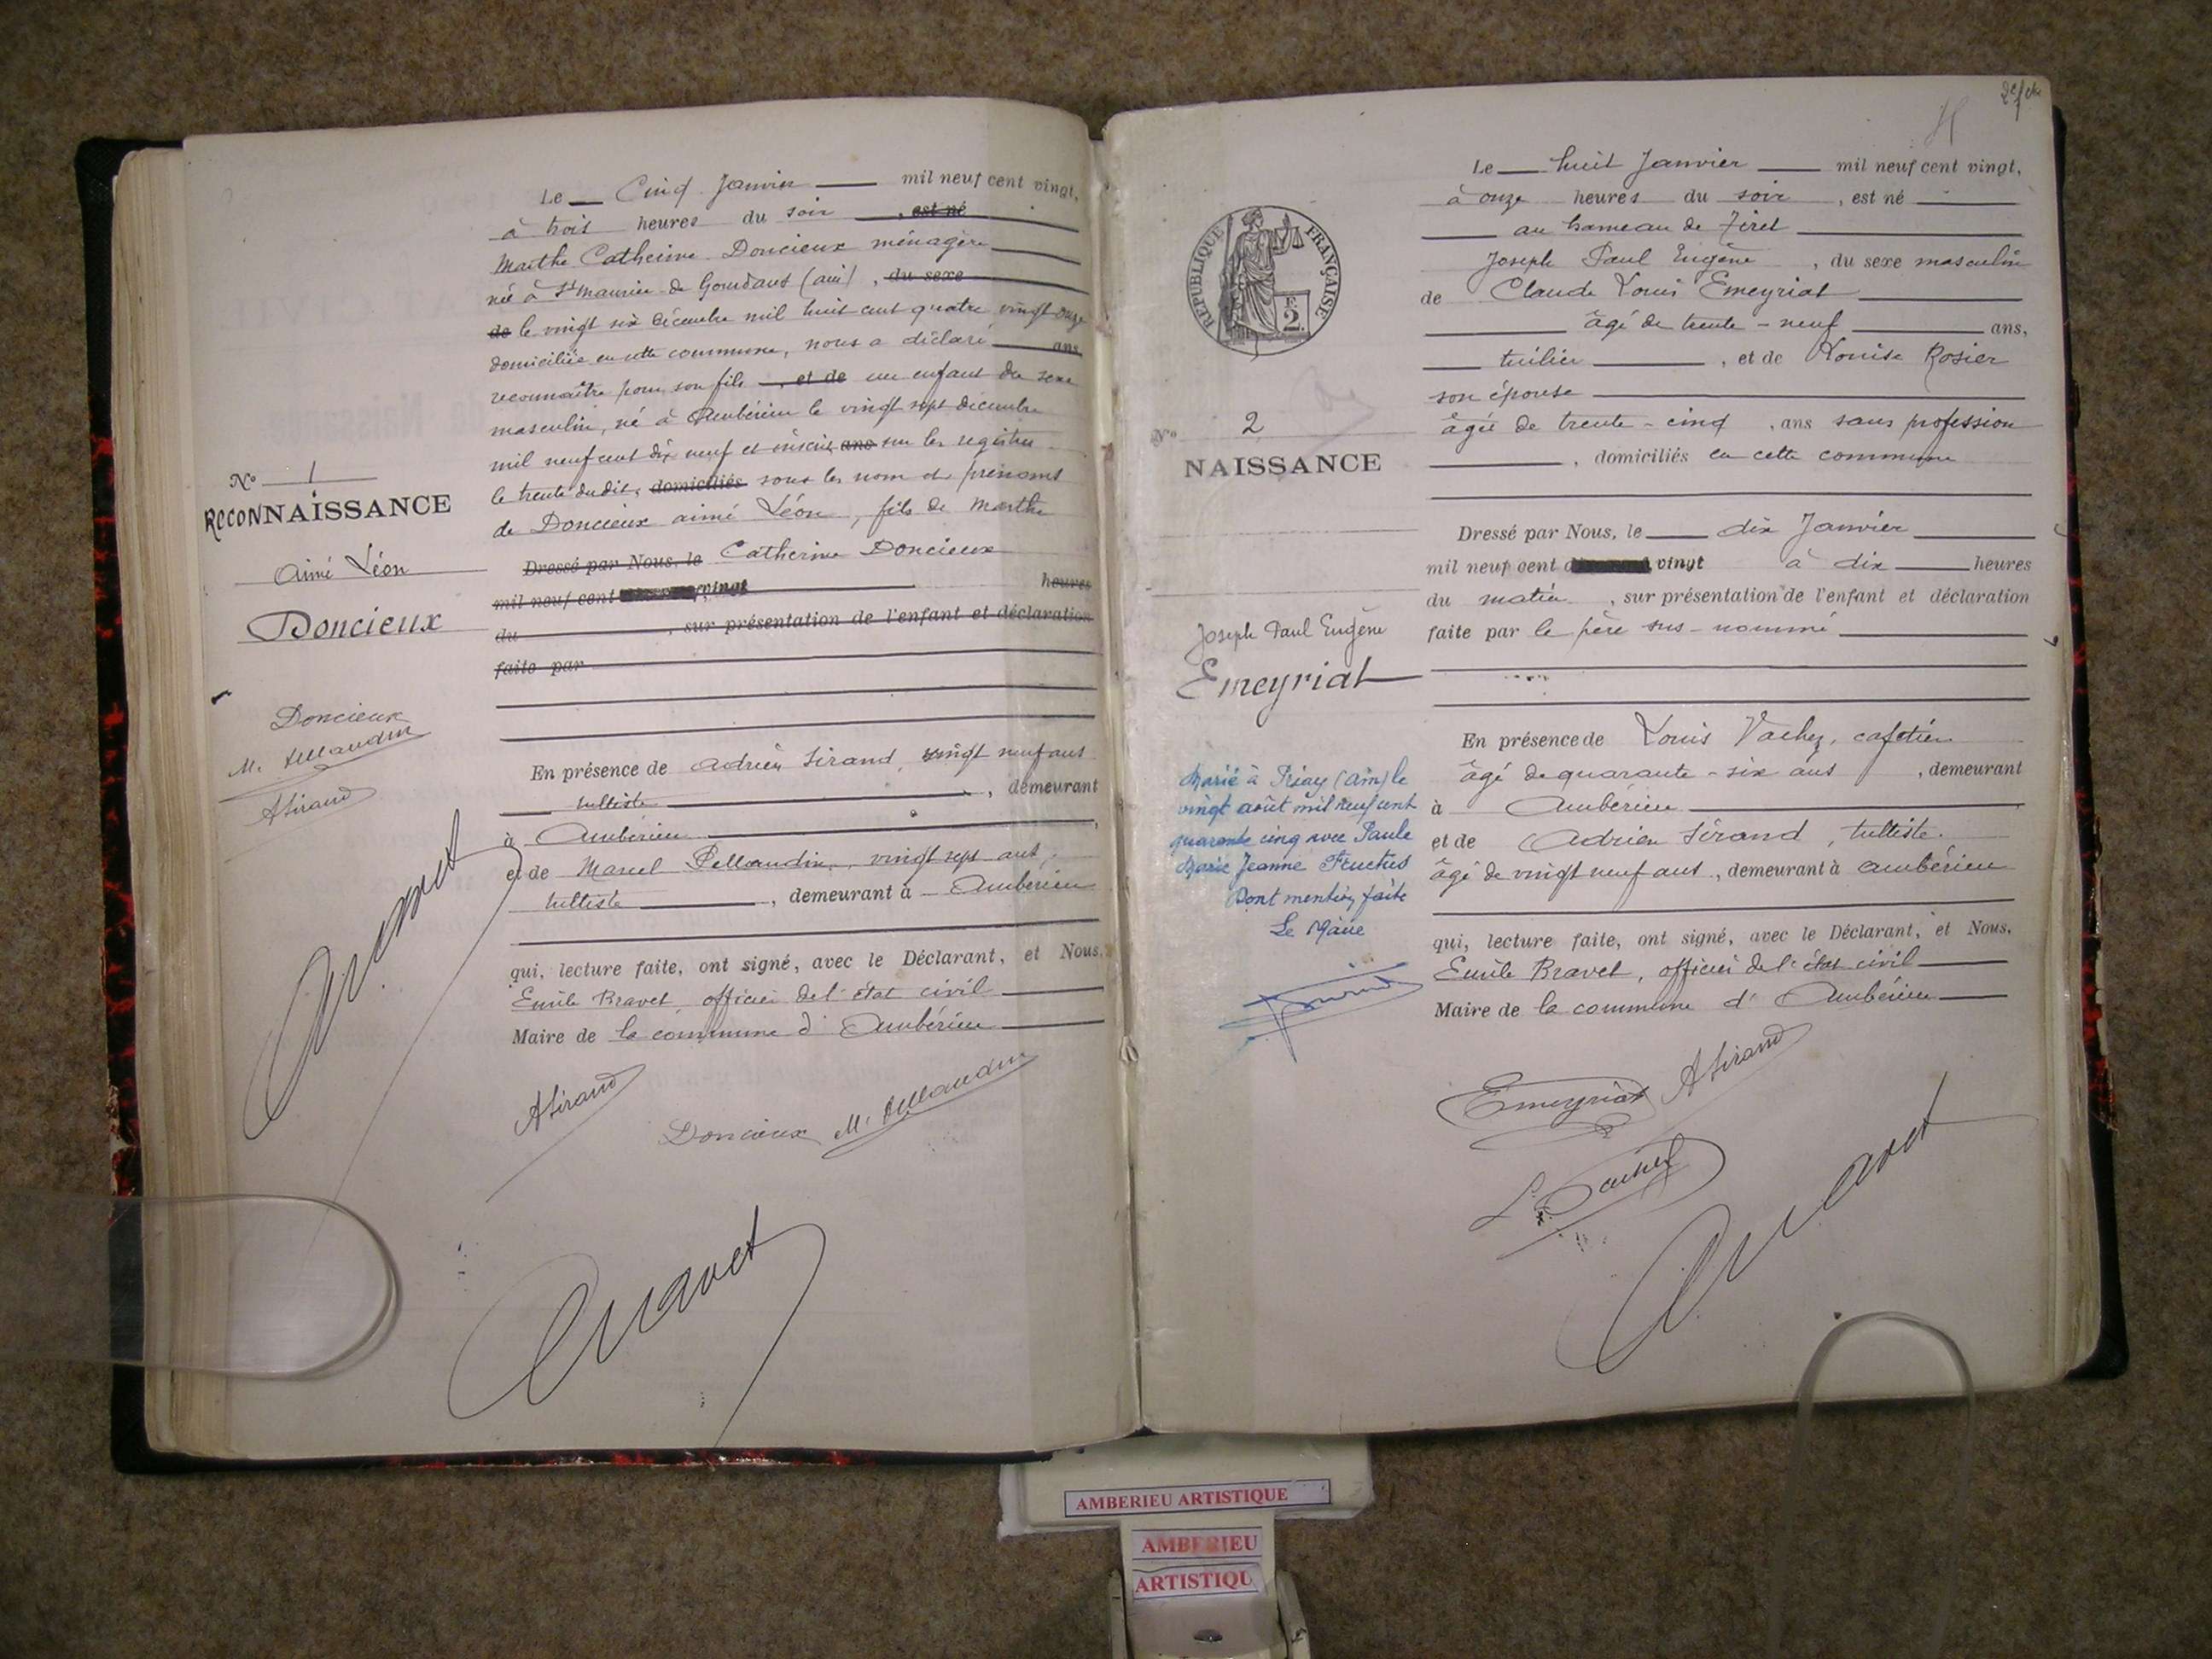 Le Cinq Janvier mil neuf cent vingt,
à trois heures du soir, est né
Marthe Catherine Doncieux ménagère
née à St Maurice de Gourdans (ain), du sexe
de le vingt six décembre mil huit cent quatre vingt onze
domiciliée en cette commune, nous a déclaré ans,
reconnaître pour son fils, et de un enfant du sexe
masculin, né à Ambérieu le vingt sept décembre
mil neuf cent dix neuf et inscrit ans sur les registres
le trente dudit, domiciliés sous les nom et prénoms
de Doncieux aimé Léon, fils de Marthe
Dressé par Nous, le Catherine Doncieux
mil neuf cent vingt heures
du , sur présentation de l'enfant et déclaration
faite par
En présence de Adrien Sirand, vingt neuf ans
tulliste, demeurant
à Ambérieu,
et de Marcel Pellaudin, vingt sept ans,
tulliste, demeurant à Ambérieu
qui, lecture faite, ont signé, avec le Déclarant, et Nous,
Emile Bravet officier de l'état civil
Maire de la commune d'Ambérieu
ASirand
Doncieux M.
Bravet
N° 1
RECONNAISSANCE
Aimé Léon
Doncieux
Doncieux
M.
ASirand
Bravet
2e
Le huit Janvier mil neuf cent vingt,
à onze heures du soir, est né
au hameau de Tiret
Joseph Paul Eugène, du sexe masculin
de Claude Louis Emeyriat
âgé de trente-neuf ans,
tuilier, et de Louise Rosier
son épouse
âgée de trente-cinq, ans sans profession
, domiciliés en cette commune
Dressé par Nous, le dix Janvier
mil neuf cent vingt à dix heures
du matin, sur présentation de l'enfant et déclaration
faite par le père sus-nommé
En présence de Louis Vachez, cafetier
âgé de quarante-six ans, demeurant
à Ambérieu
et de Adrien Sirand, tulliste.
âgé de vingt neuf ans, demeurant à Ambérieu
qui, lecture faite, ont signé, avec le Déclarant, et Nous,
Emile Bravet, officier de l'état civil
Maire de la commune d'Ambérieu
Emeyriat ASirand
L. Vachez
Bravet
RÉPUBLIQUE FRANÇAISE
F.
2.
N° 2
NAISSANCE
Joseph Paul Eugène
Emeyriat
Marié à Priay (Ain) le
vingt août mil neuf cent
quarante cinq avec Paule
Marie Jeanne Fructus
Dont mention faite
Le Maire
AMBERIEU ARTISTIQUE
AMBERIEU
ARTISTIQU